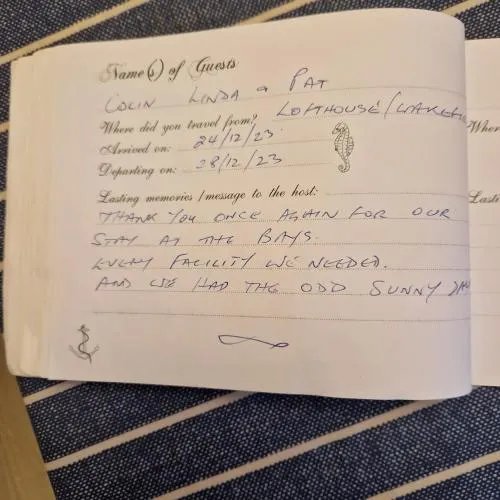 Name(s) of Guests
COLIN LINDA & PAT
Where did you travel from? LOFTHOUSE/WAKEFI
Arrived on: 24/12/23
Departing on: 28/12/23
Lasting memories / message to the host:
THANK YOU ONCE AGAIN FOR OUR
STAY AT THE BAYS.
EVERY FACILITY WE NEEDED.
AND WE HAD THE ODD SUNNY
Wher
Lasti